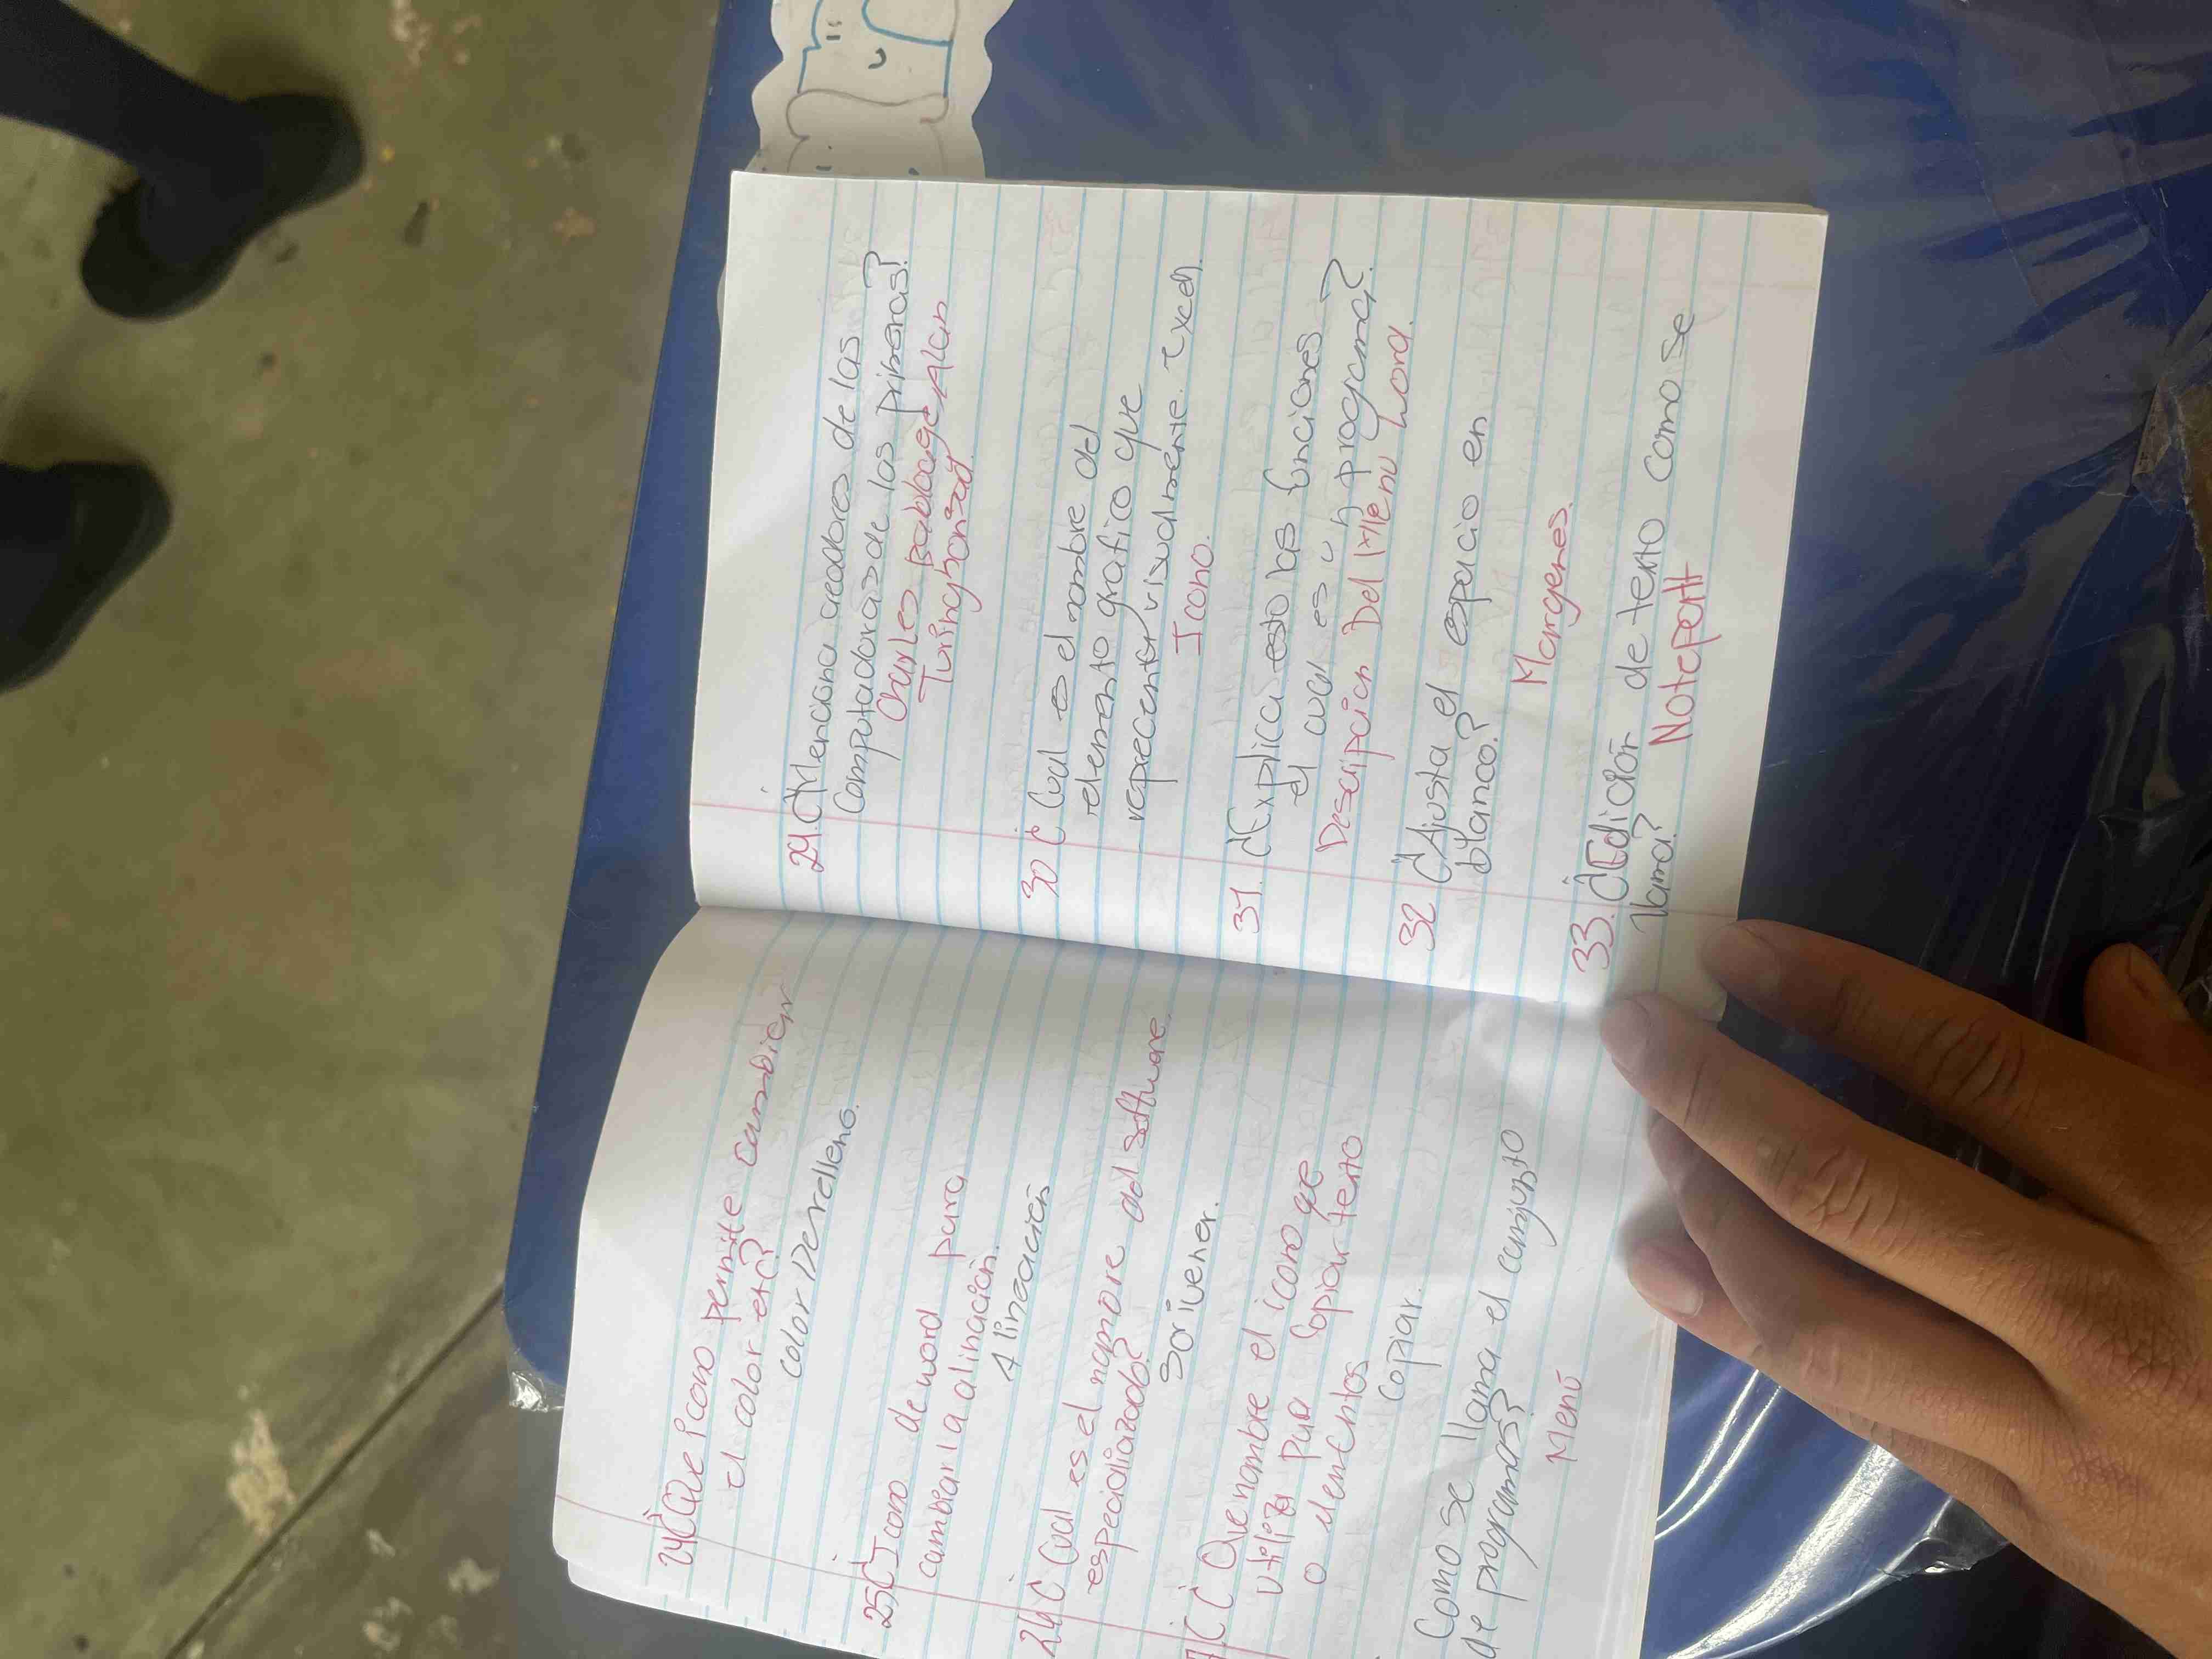 24 ¿Que icono permite cambiar
el color etc?
color De relleno.
25 ¿Icono de word para
cambiar la alinación.
Alinación
¿Cual es el nombre del software
especializado?
Scrivener.
¿Que nombre el icono que
utiliza para Copiar texto
o elementos
Copiar.
Como se llama el conjunto
de programas?
Menú
29. ¿Menciona creadores de las
Computadoras de las primeras?
Charles babbage Alan
Turing
30 ¿Cual es el nombre del
elemento grafico que
representar visualmente. Excel.
Icono.
31. ¿Explica esto las funciones
el cual es un programa?
Descripcion Del
32 ¿Ajusta el espacio en
blanco?
Margenes.
33. ¿Edición de texto como se
llama?
Notepatt